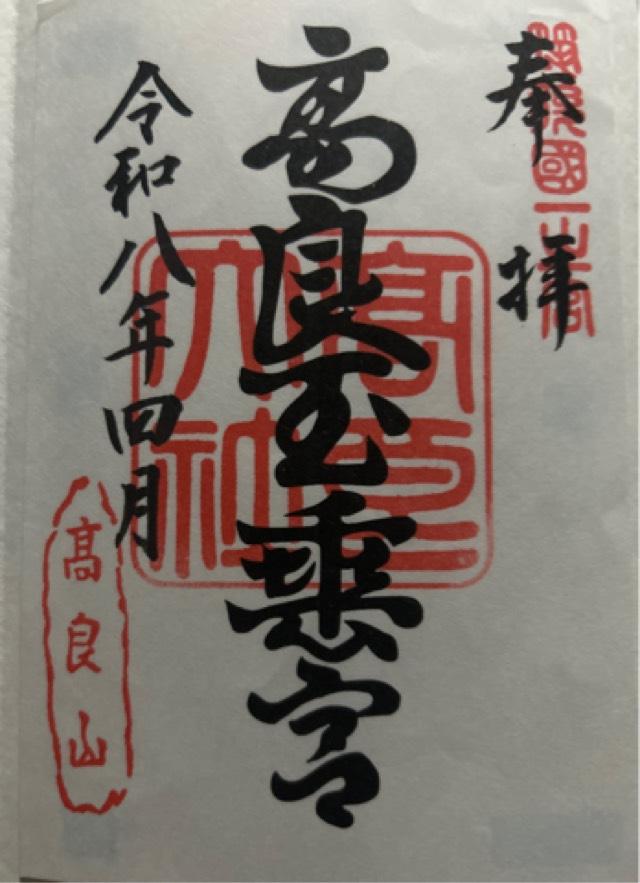 奉拝
筑後國一之宮
高良玉垂宮
高良大社
令和八年四月
髙良山